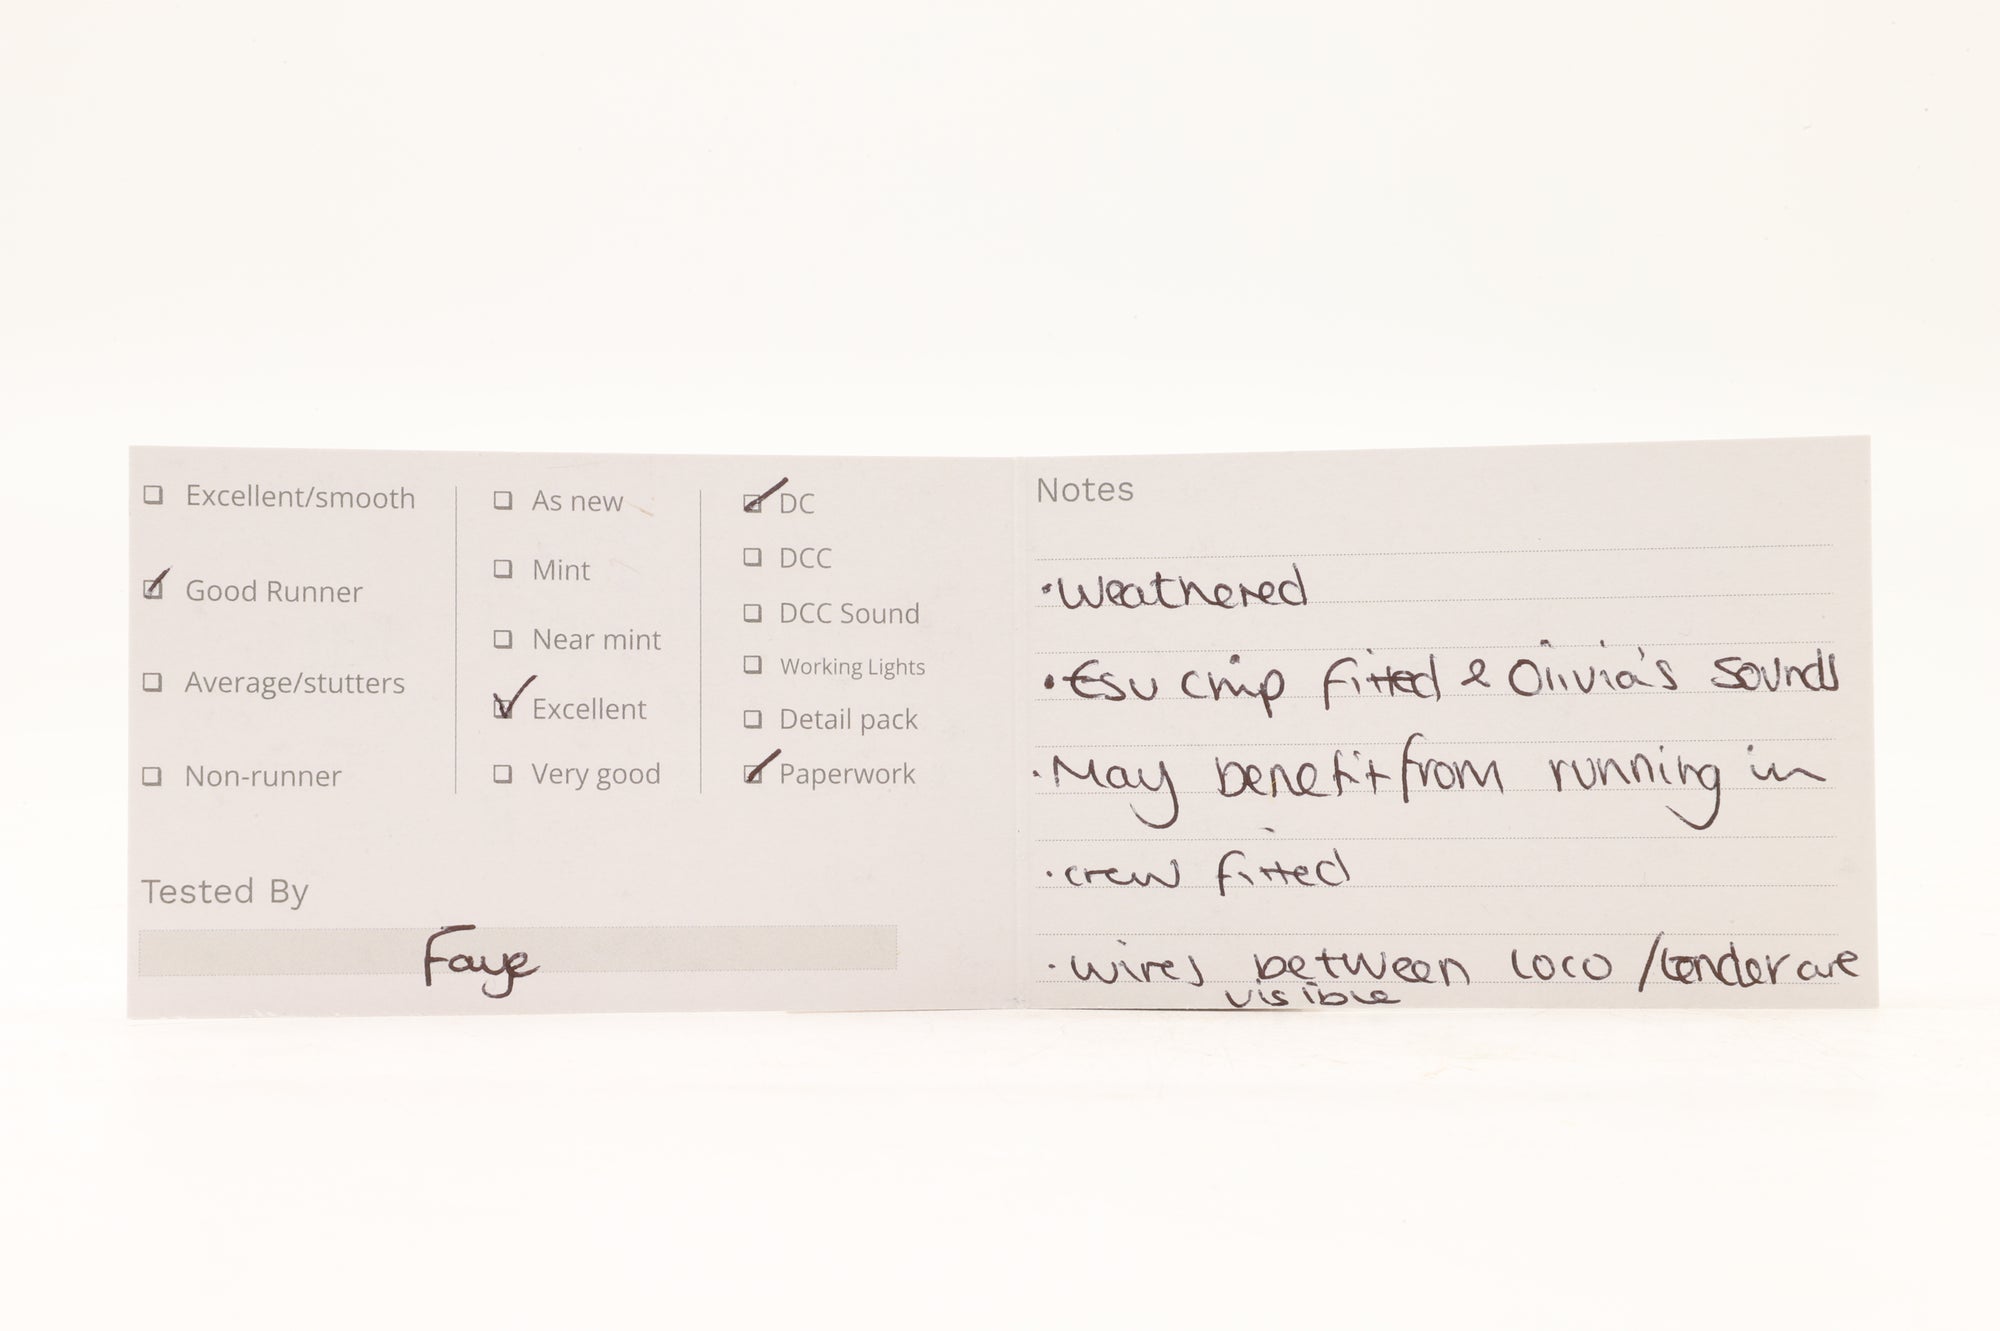 Excellent/smooth
Good Runner
Average/stutters
Non-runner
As new
Mint
Near mint
Excellent
Very good
DC
DCC
DCC Sound
Working Lights
Detail pack
Paperwork
Tested By
Faye
Notes
• Weathered
• Esu chip fitted & Olivia's sounds
• May benefit from running in
• crew fitted
• wires between loco / tender are
visible